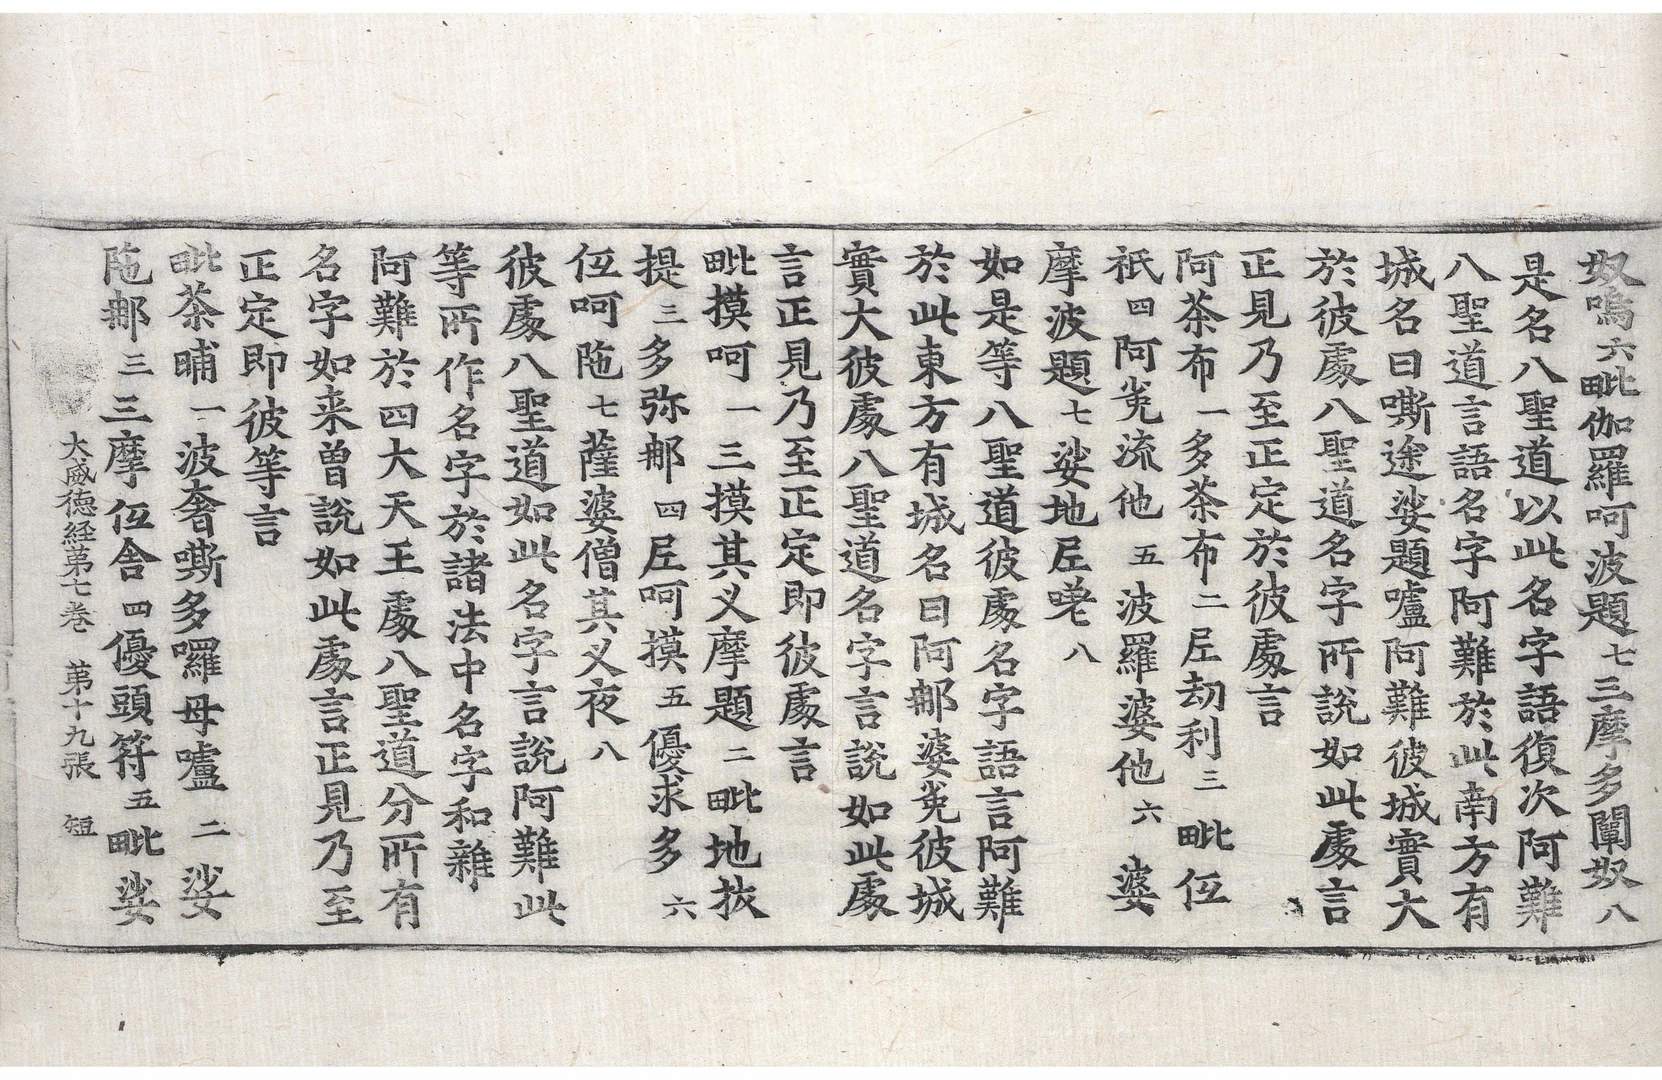 奴嗚六毗伽羅呵波題七三摩多闡奴八
是名八聖道以此名字語復次阿難
八聖道言語名字阿難於此南方有
城名曰嘶途娑題嚧阿難彼城實大
於彼處八聖道名字所說如此處言
正見乃至正定於彼處言
阿荼布一多荼布二𡰱劫利三毗伭
祇四阿㝹流他五波羅婆他六婆
摩波題七娑地𡰱嘊八
如是等八聖道彼處名字語言阿難
於此東方有城名曰阿那婆㝹彼城
實大彼處八聖道名字言說如此處
言正見乃至正定即彼處言
毗摸呵一三摸其义摩題二毗地抜
提三多弥那四𡰱呵摸五優求多六
伭呵陁七薩婆僧其义夜八
彼處八聖道如此名字言說阿難此
等所作名字於諸法中名字和雜
阿難於四大天王處八聖道分所有
名字如来曽說如此處言正見乃至
正定即彼等言
毗荼晡一波奢嘶多囉母嚧二娑
陁那三三摩伭舎四優頭符五毗娑
大威徳経苐七巻 苐十九張 短